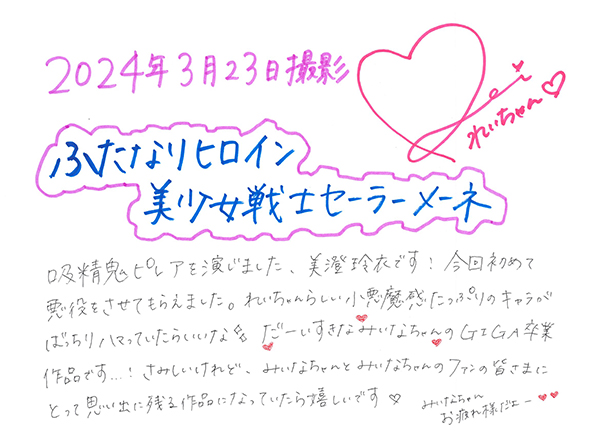 2024年3月23日撮影
れいちゃん♡
ふたなりヒロイン
美少女戦士セーラーメーネ
吸精鬼ピレアを演じました、美澄玲衣です！今回初めて
悪役をさせてもらえました。れいちゃんらしい小悪魔感たっぷりのキャラが
ばっちりハマっていたらいいな だーいすきなみいなちゃんのGIGA卒業
作品です...！さみしいけれど、みいなちゃんとみいなちゃんのファンの皆さまに
とって思い出に残る作品になっていたら嬉しいです♡
みいなちゃん
お疲れ様だよー♥♥